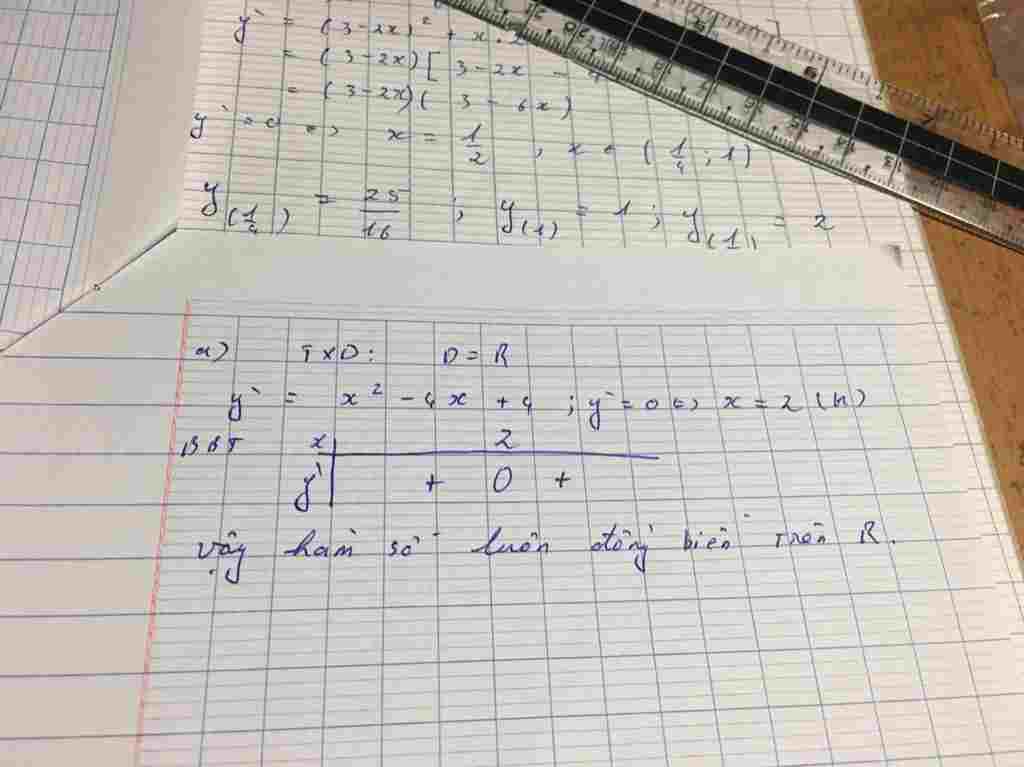 y' = (3-2x)² + x.2
= (3-2x)[3-2x - 4
= (3-2x)(3-6x)
y'=0 => x = 1/2 , x ∈ (1/4 ; 1)
y(1/4) = 25/16 ; y(1) = 1 ; y(1) = 2
a) TXD: D = R
y' = x² - 4x + 4 ; y'=0 <=> x = 2 (n)
BBT x 2
y' + 0 +
Vậy hàm số luôn đồng biến trên R.